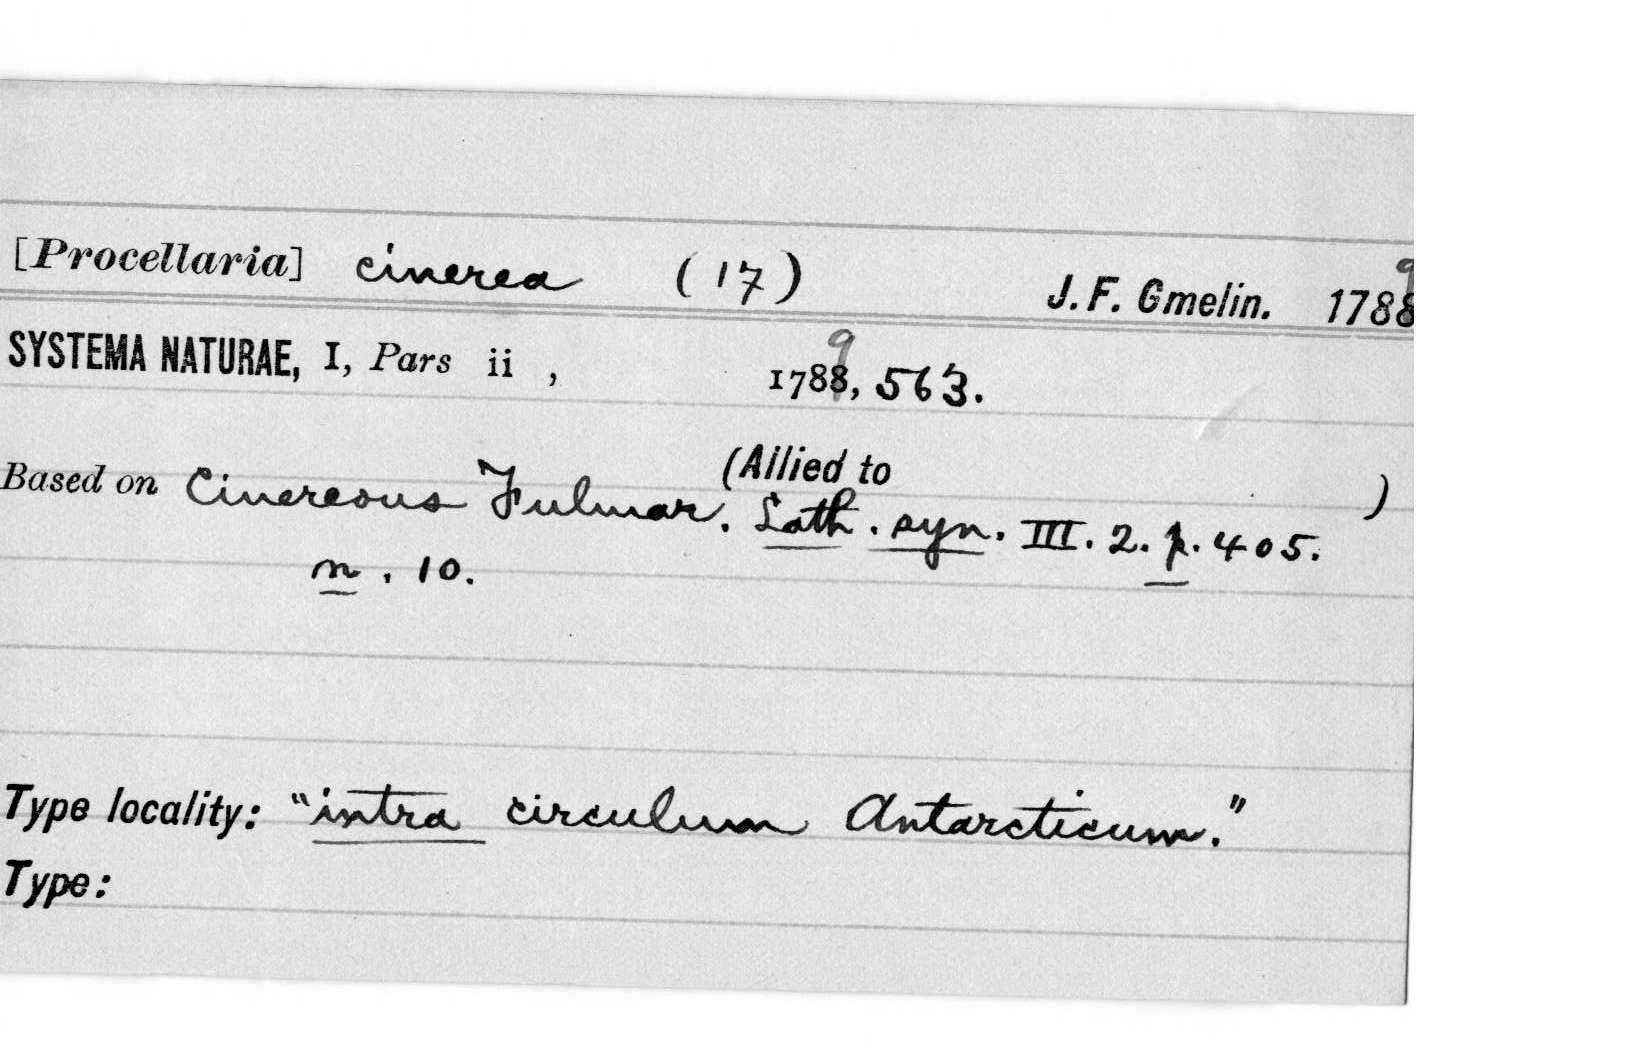 [Procellaria] cinerea (17) J. F. Gmelin. 1788 9
SYSTEMA NATURAE, I, Pars ii , 1788 9, 563.
(Allied to )
Based on Cinereous Fulmar. Lath. syn. III. 2. p. 405.
n. 10.
Type locality: "intra circulum Antarcticum."
Type: